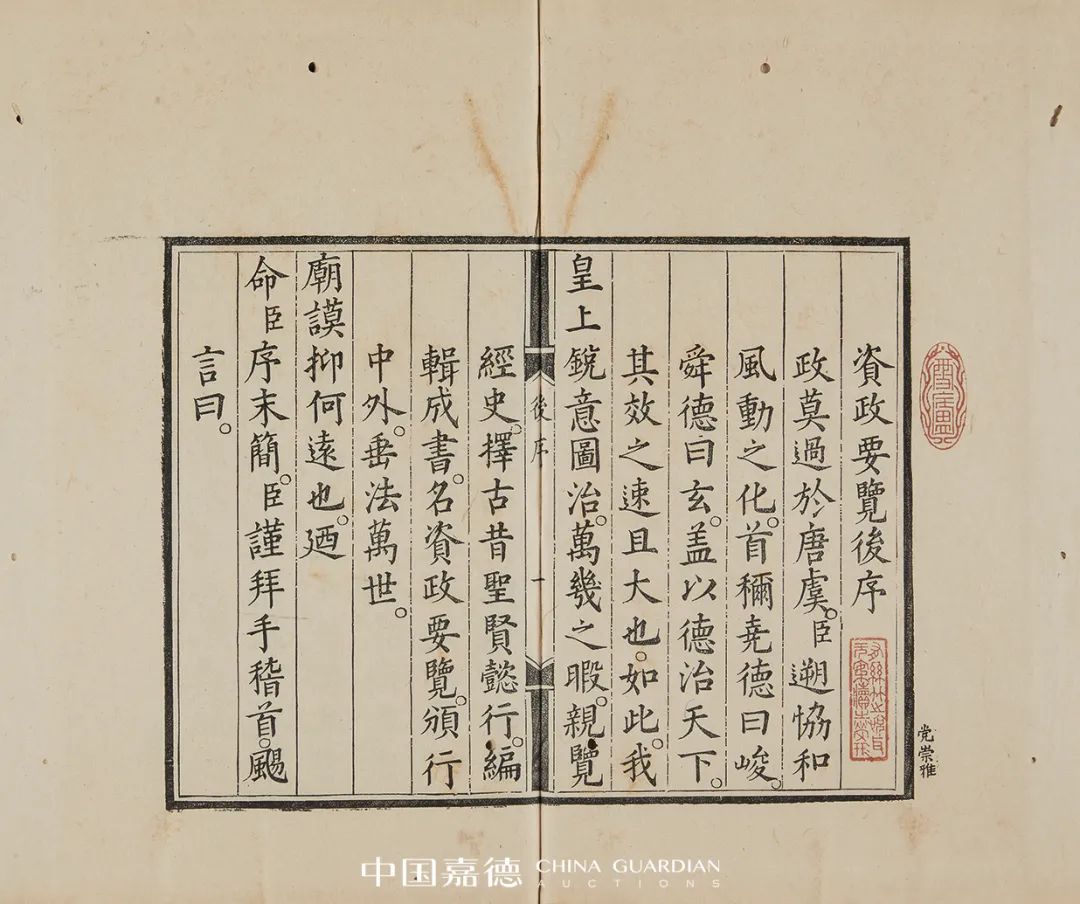 資政要覽後序
政莫過於唐虞。臣遡恊和
風動之化。首穪堯德曰峻。
舜德曰玄。盖以德治天下。
其效之速且大也。如此。我
皇上銳意圖治。萬幾之暇。親覽
後序
一
經史。擇古昔聖賢懿行。編
輯成書。名資政要覽。頒行
中外。垂法萬世。
廟謨抑何遠也。廼
命臣序末簡。臣謹拜手稽首。颺
言曰。
党崇雅
中国嘉德 CHINA GUARDIAN
AUCTIONS